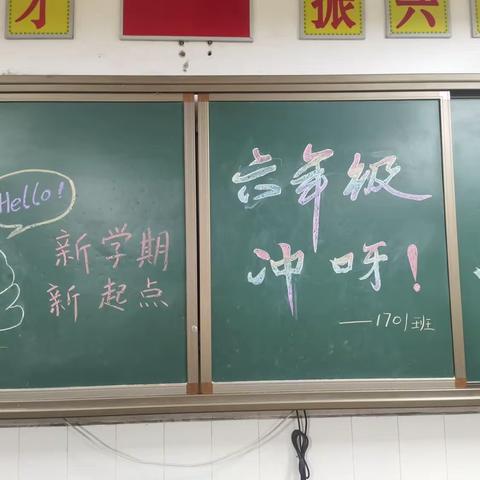 才
振
兴
Hello!
新学期
新起点
六年级
冲呀!
——1701班